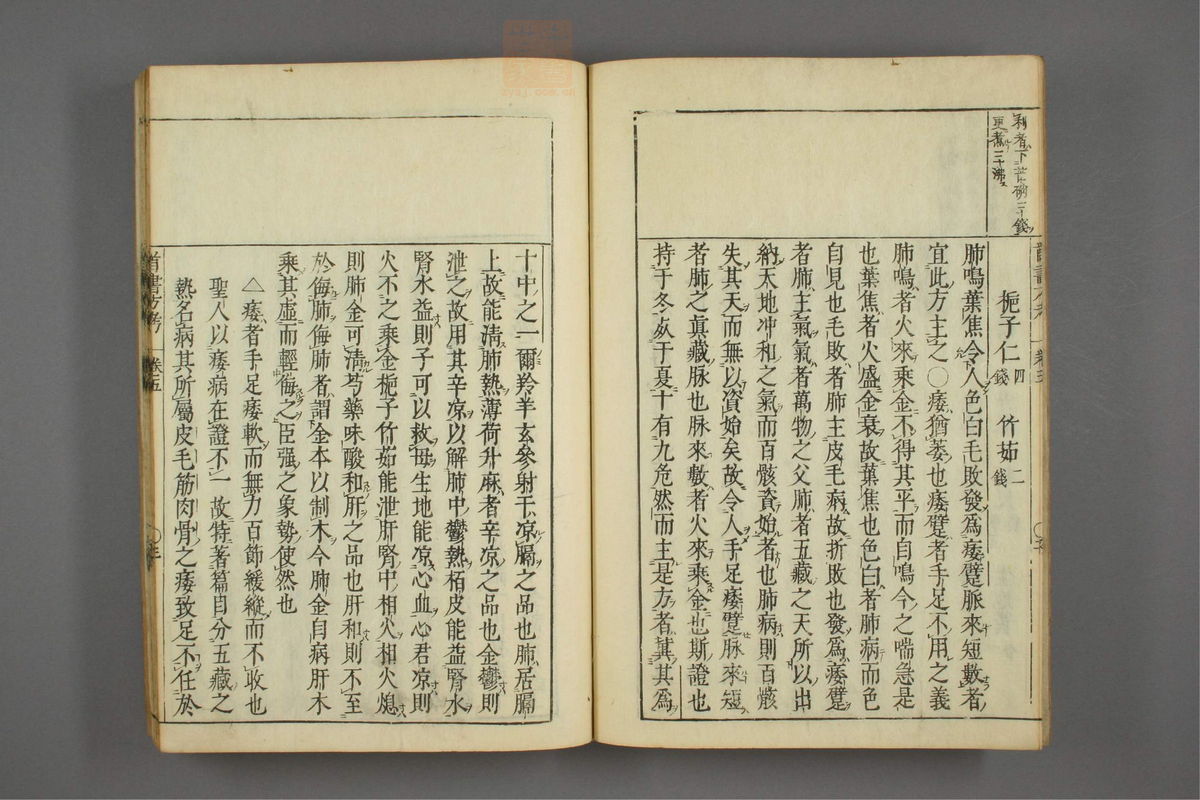 利者下芒硝三十錢
更煮三十沸
梔子仁四錢 竹茹二錢
肺鳴葉焦令人色白毛敗發爲痿躄脈來短數者
宜此方主之○痿猶萎也痿躄者手足不用之義
肺鳴者火來乘金不得其平而自鳴今之喘急是
也葉焦者火盛金衰故葉焦也色白者肺病而色
自見也毛敗者肺主皮毛病故折敗也發爲痿躄
者肺主氣氣者萬物之父肺者五藏之天所以出
納太地冲和之氣而百骸資始者也肺病則百骸
失其天而無以資始矣故令人手足痿躄脉來短
者肺之眞藏脉也脉來數者火來乘金也斯證也
持于冬死于夏十有九危然而主是方者冀其爲
十中之一爾羚羊玄參射干凉膈之品也肺居膈
上故能清肺熱薄荷升麻者辛凉之品也金鬱則
泄之故用其辛凉以解肺中鬱熱栢皮能益腎水
腎水益則子可以救母生地能凉心血心君凉則
火不之乘金梔子竹茹能泄肝腎中相火相火熄
則肺金可清芍藥味酸和肝之品也肝和則不至
於侮肺侮肺者謂金本以制木今肺金自病肝木
乘其虛而輕侮之臣强之象勢使然也
△痿者手足痿軟而無力百節緩縱而不收也
聖人以痿病在證不一故特著篇目分五藏之
熱名病其所屬皮毛筋肉骨之痿致足不任於
首書方考 卷五